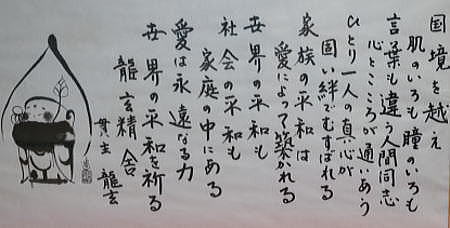 国境を越え
肌のいろも瞳のいろも
言葉も違う人間同志
心とこころが通いあう
ひとり一人の真心が
固い絆でむすばれる
家族の平和は
愛によって築かれる
世界の平和も
社会の平和も
家庭の中にある
愛は永遠なる力
世界の平和を祈る
龍玄精舎
貫主 龍玄